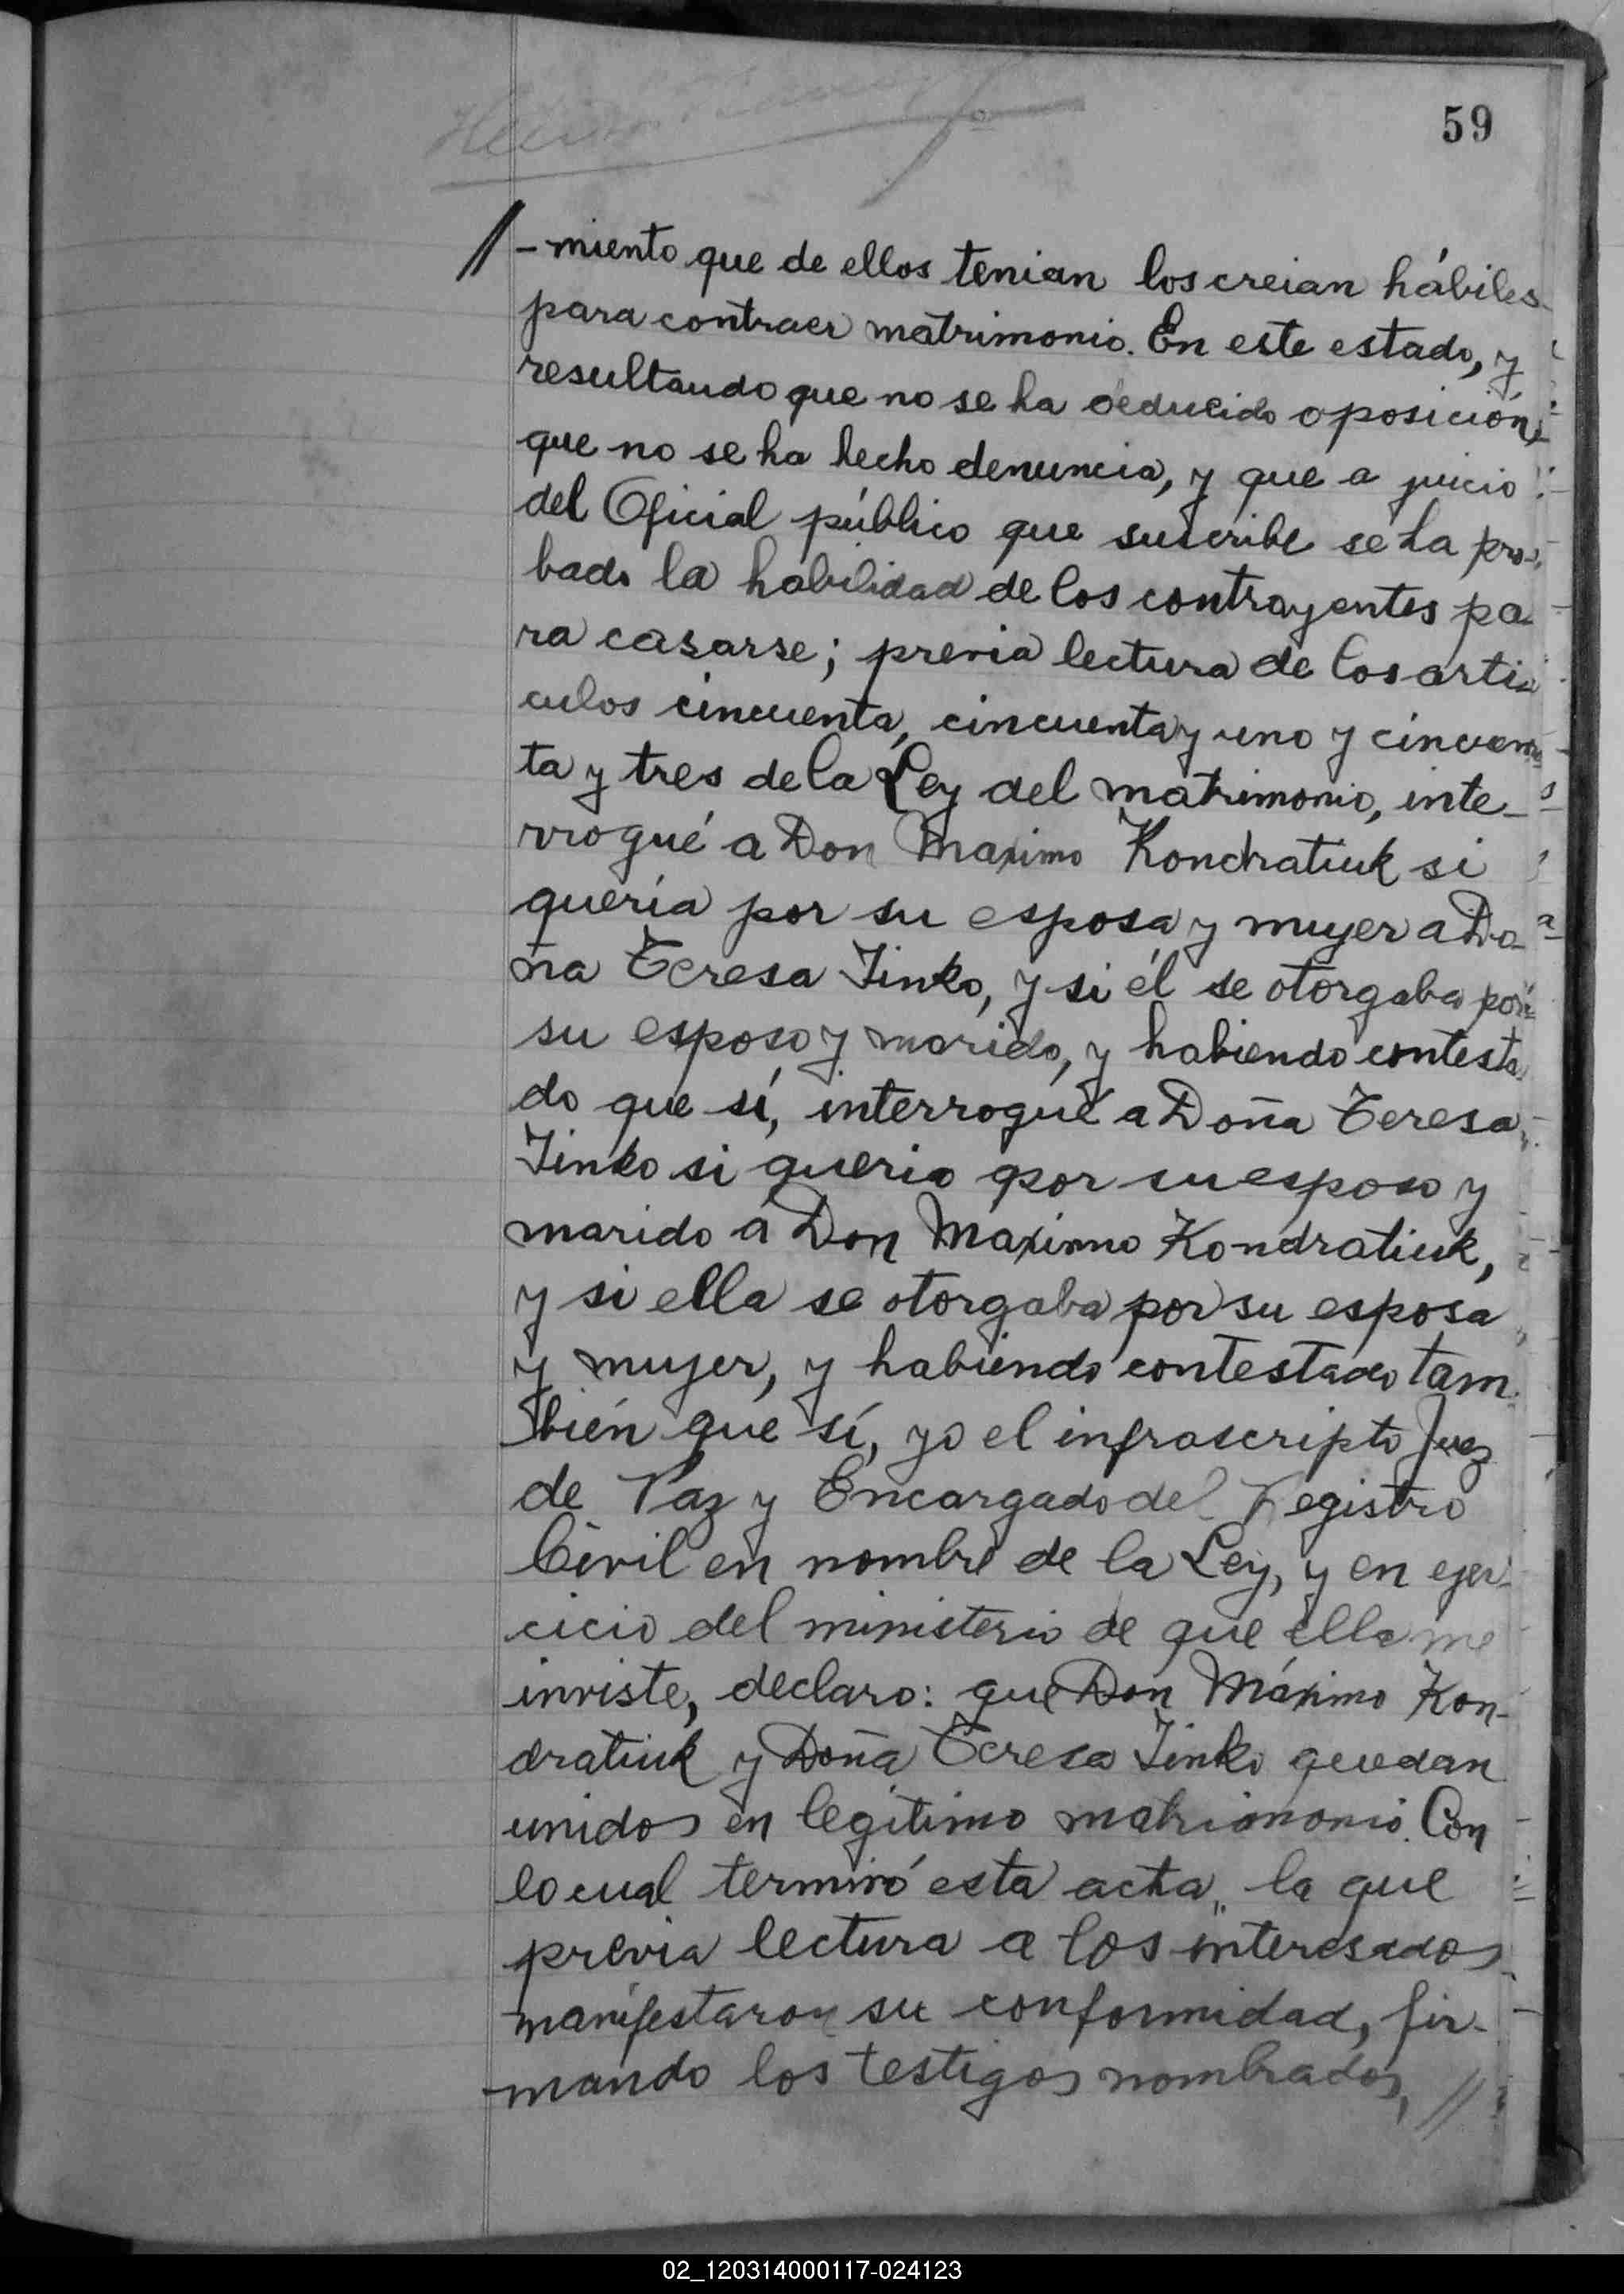 59
//-miento que de ellos tenian los creian hábiles
para contraer matrimonio. En este estado, y
resultando que no se ha deducido oposición,
que no se ha hecho denuncia, y que a juicio
del Oficial público que suscribe se ha pro-
bado la habilidad de los contrayentes pa-
ra casarse; previa lectura de los arti-
culos cincuenta, cincuenta y uno y cincuen-
ta y tres de la Ley del matrimonio, inte-
rrogué a Don Maximo Kondratiuk si
quería por su esposa y mujer a Do-
ña Teresa Jinko, y si él se otorgaba por
su esposo y marido, y habiendo contesta
do que sí, interrogué a Doña Teresa
Jinko si queria por su esposo y
marido a Don Maximo Kondratiuk,
y si ella se otorgaba por su esposa
y mujer, y habiendo contestado tam-
bién que sí, yo el infrascripto Juez
de Paz y Encargado del Registro
Civil en nombre de la Ley, y en ejer-
cicio del ministerio de que ella me
inviste, declaro: que Don Máximo Kon-
dratiuk y Doña Teresa Jinko quedan
unidos en legitimo matrimonio. Con
lo cual terminó esta acta, la que
previa lectura a los interesados
manifestaron su conformidad, fir-
mando los testigos nombrados, //
02_120314000117-024123